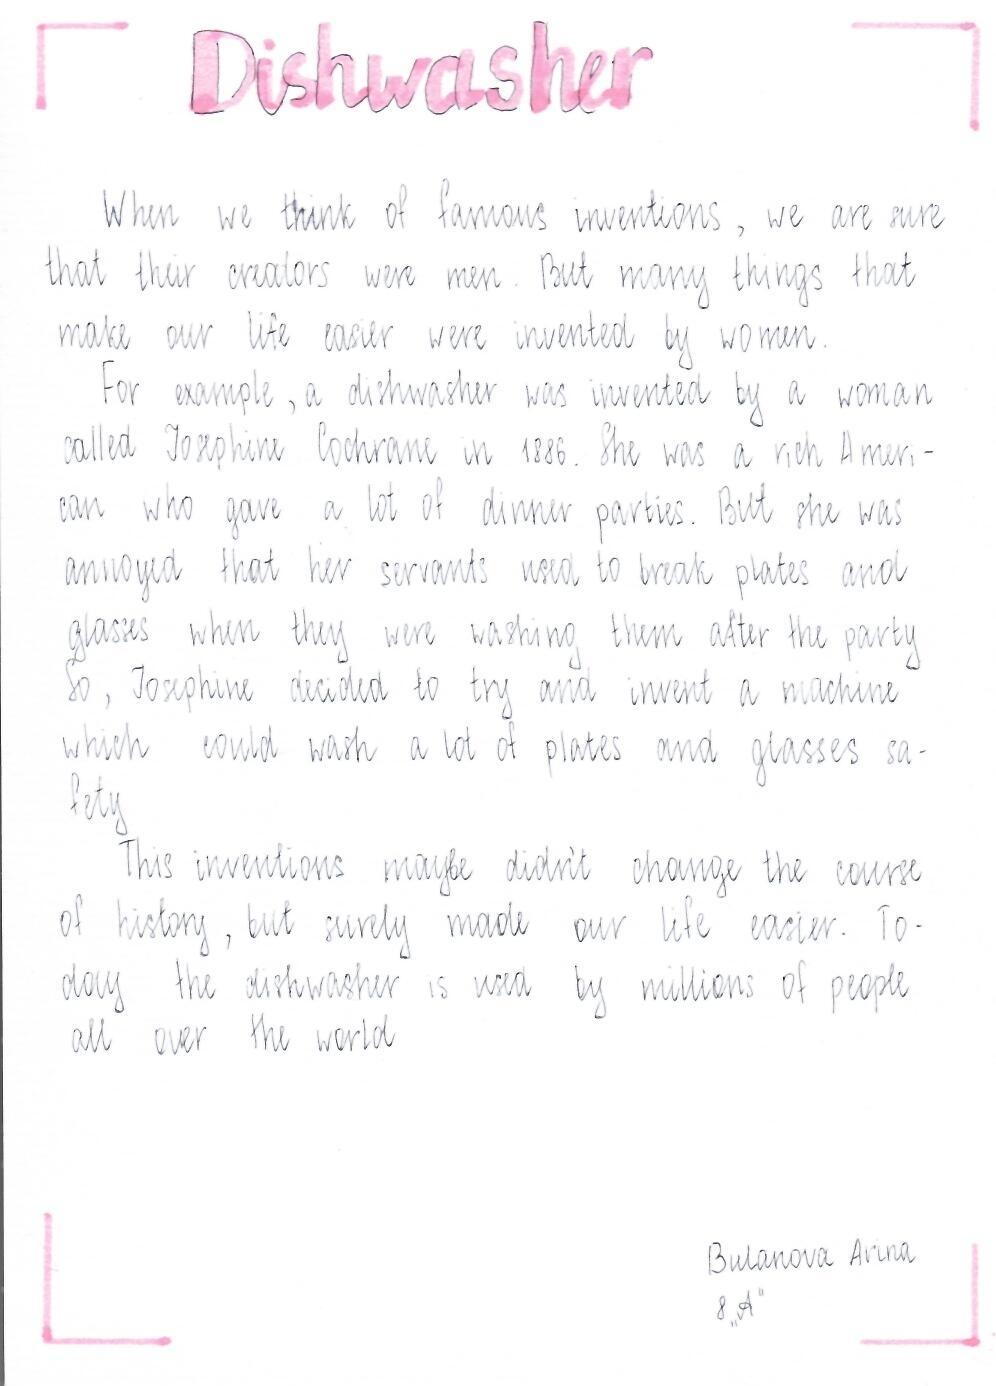 Dishwasher
When we think of famous inventions, we are sure
that their creators were men. But many things that
make our life easier were invented by women.
For example, a dishwasher was invented by a woman
called Josephine Cochrane in 1886. She was a rich Ameri-
can who gave a lot of dinner parties. But she was
annoyed that her servants used to break plates and
glasses when they were washing them after the party
So, Josephine decided to try and invent a machine
which could wash a lot of plates and glasses sa-
fety
This inventions maybe didn't change the course
of history, but surely made our life easier. To-
day the dishwasher is used by millions of people
all over the world
Bulanova Arina
8 „A"